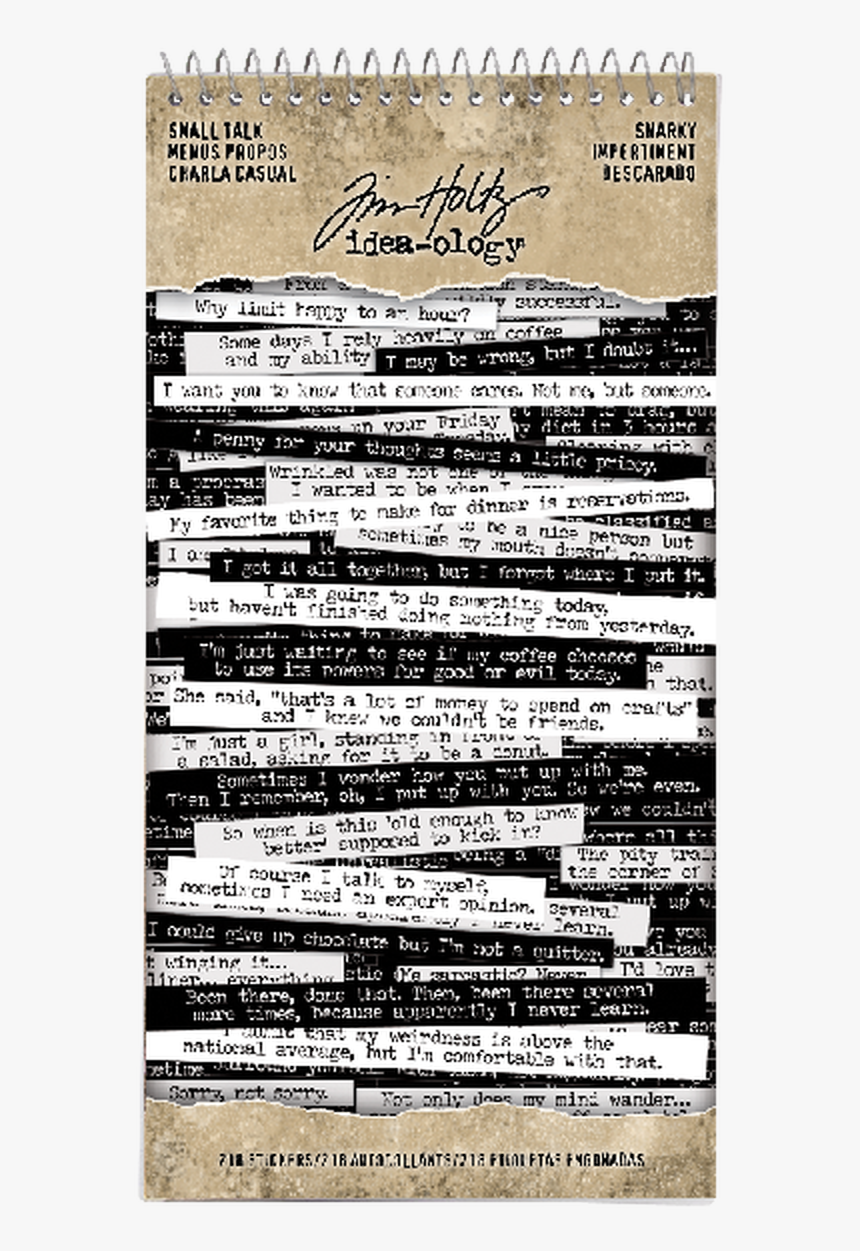 SMALL TALK
MENUS PROPOS
CHARLA CASUAL
SNARKY
IMPERTINENT
DESCARADO
Tim Holtz
idea-ology
successful.
Why limit happy to an hour?
to
Some days I rely heavily on coffee
and my ability
I may be wrong, but I doubt it...
I want you to know that someone cares. Not me, but someone.
on your Friday
diet in 3 hours
A penny for your thoughts seems a little pricey.
Wrinkled was not one of the
I wanted to be when I
My favorite thing to make for dinner is reservations.
to be a nice person but
sometimes my mouth doesn't
I got it all together, but I forgot where I put it.
I was going to do something today,
but haven't finished doing nothing from yesterday.
I'm just waiting to see if my coffee chooses
to use its powers for good or evil today.
that.
She said, "that's a lot of money to spend on crafts"
and I knew we couldn't be friends.
I'm just a girl, standing in front of
a salad, asking for it to be a donut.
Sometimes I wonder how you put up with me.
Then I remember, oh, I put up with you. So we're even.
we couldn't
So when is this 'old enough to know
better' supposed to kick in?
where all
The pity
the corner of
Of course I talk to myself,
sometimes I need an expert opinion.
several
I never learn.
I could give up chocolate but I'm not a quitter.
you
already
winging it...
everything
Me sarcastic? Never
I'd love
Been there, done that. Then, been there several
more times, because apparently I never learn.
I admit that my weirdness is above the
national average, but I'm comfortable with that.
Sorry, not sorry.
Not only does my mind wander...
218 STICKERS/218 AUTOCOLLANTS/218 ETIQUETAS ENGOMADAS